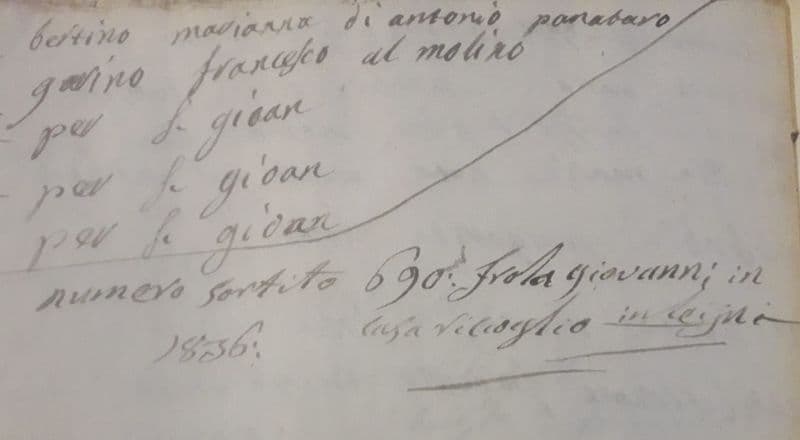 bertino marianna di antonio panataro
gorino francesco al molino
- per S. gioan
- per S. gioan
per S. gioan
numero sortito 690: frola giovanni in
1836: casa vilioglio in leinì